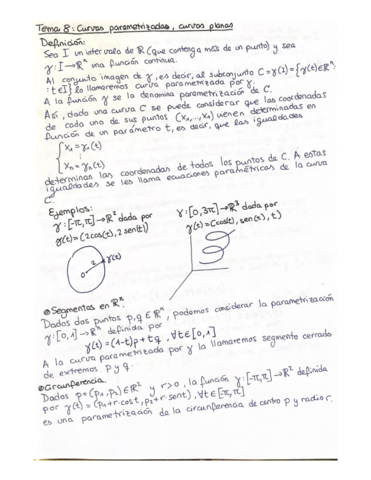 Tema 8: Curvas parametrizadas, curvas planas
Definición:
Sea I un intervalo de ℝ (que contenga más de un punto) y sea
γ: I→ℝⁿ una función continua.
Al conjunto imagen de γ, es decir, al subconjunto C=γ(I)={γ(t)∈ℝⁿ:
: t∈I} lo llamaremos curva parametrizada por γ.
A la función γ se la denomina parametrización de C.
Así, dado una curva C se puede considerar que las coordenadas
de cada uno de sus puntos (x₁,...,xₙ) vienen determinadas en
función de un parámetro t, es decir, que las igualdades
{x₁=γ₁(t)
⋮
xₙ=γₙ(t)
determinan las coordenadas de todos los puntos de C. A estas
igualdades se les llama ecuaciones paramétricas de la curva
C.
Ejemplos:
γ: [-π,π]→ℝ² dada por
γ(t)=(2cos(t),2sen(t))
γ: [0,3π]→ℝ³ dada por
γ(t)=(cos(t), sen(t), t)
2
γ(t)
Segmentos en ℝⁿ.
Dados dos puntos p,q∈ℝⁿ, podemos considerar la parametrización
γ: [0,1]→ℝⁿ definida por
γ(t)=(1-t)p+tq, ∀t∈[0,1]
A la curva parametrizada por γ la llamaremos segmento cerrado
de extremos p y q.
Circunferencia.
Dados p=(p₁,p₂)∈ℝ² y r>0, la función γ: [-π,π]→ℝ² definida
por γ(t)=(p₁+r·cost, p₂+r·sent), ∀t∈[-π,π]
es una parametrización de la circunferencia de centro p y radio r.